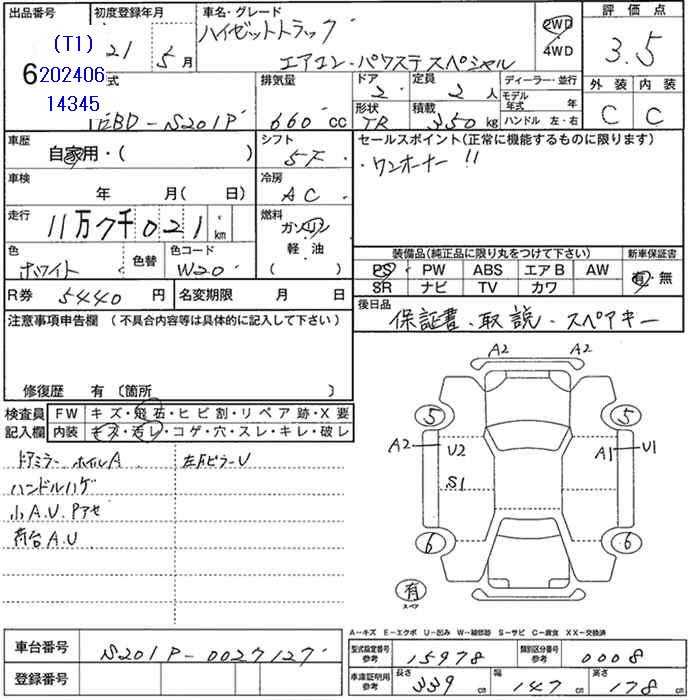 出品番号 初度登録年月 車名・グレード 評価点
6 (T1) 202406 14345
21 5月
ハイゼットトラック
エアコン・パワステスペシャル
2WD 4WD
3.5
型式 排気量 ドア 定員 ディーラー・並行 外装 内装
EBD-S201P 660cc 2 2人 モデル年式 年 C C
形状 積載 ハンドル 左・右
TR 350kg
車歴 シフト セールスポイント(正常に機能するものに限ります)
自家用・( ) 5F ・ワンオーナー!!
車検 冷房
年 月( 日) AC
走行 燃料
11万7千021 km ガソリン
色 色替 色コード 軽・油
ホワイト W20 ( )
装備品(純正品に限り丸をつけて下さい) 新車保証書
PS PW ABS エアB AW 有・無
SR ナビ TV カワ
R券 5440円 名変期限 月 日
後日品 保証書、取説・スペアキー
注意事項申告欄(不具合内容等は具体的に記入して下さい)
修復歴 有〔箇所 〕
検査員記入欄
FW キズ・飛石・ヒビ割・リペア跡・X要
内装 キズ・汚レ・コゲ・穴・スレ・キレ・破レ
ドアミラー ホイルA
ハンドルハゲ
小A.U.Pアセ
荷台A.U
A2 A2
5 5
A2 U2 A1 U1
S1
6 6
有
スペア
A-キズ E-エクボ U-凹み W-補修跡 S-サビ C-腐食 XX-交換済
車台番号 S201P-0027127
登録番号
型式指定番号 参考 15978 類別区分番号 参考 0008
車庫証明用 参考 長さ 339cm 幅 147cm 高さ 178cm